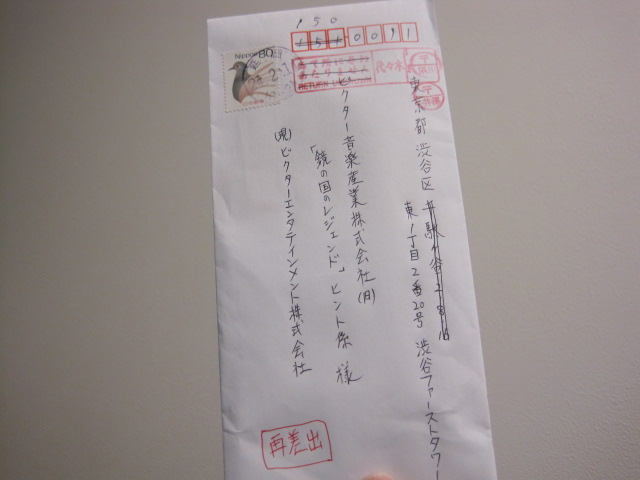 150
151 0091
NIPPON 80
日本郵便
あて所に尋ね
あたりません
RETURN UNKNOWN
代々木
東京都渋谷区千駄ヶ谷2-8-16
東1丁目2番20号 渋谷ファーストタワー
ビクター音楽産業株式会社(旧)
「鏡の国のレジェンド」ヒント係 様
(現)ビクターエンタテインメント株式会社
再差出